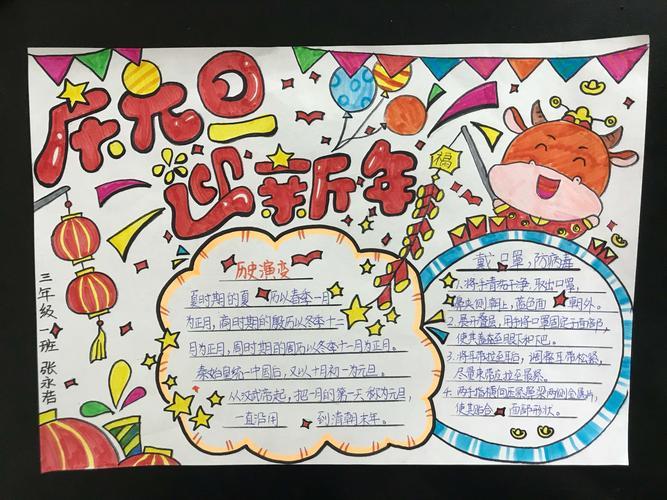 庆元旦
迎新年
福
三年级一班 张永浩
历史演变
夏时期的夏 历以春季一月
为正月,商时期的殷历以冬季十二
月为正月,周时期的周历以冬季十一月为正月。
秦始皇统一中国后,又以十月初一为元旦。
从汉武帝起,把一月的第一天称为元旦,
一直沿用 到清朝末年。
戴 口罩,防病毒
1.将手清洁干净,取出口罩,
鼻夹侧朝上,蓝色面 朝外。
2.展开叠层,用手将口罩固定于面部,
使其覆盖至眼下和下巴。
3.将耳带拉至耳后,调整耳带松紧,
尽量 带 拉至最紧。
4.两手指横向压紧鼻梁两侧金属片,
使其贴合 面部形状。